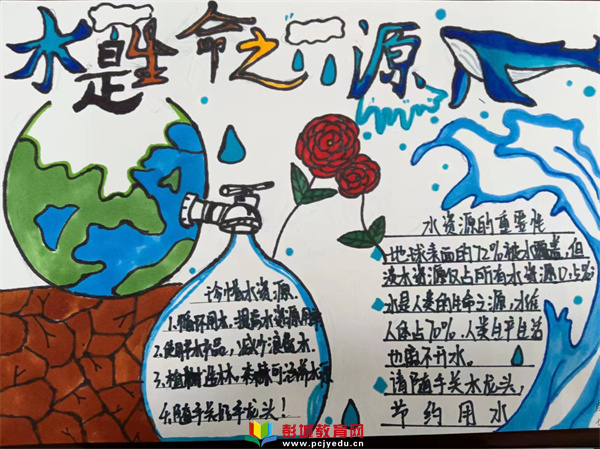 水是生命之源
水资源的重要性
地球表面的72%被水覆盖,但
淡水资源仅占所有水资源0.
水是人类的生命之源,水维
人体占70%,人类生产生活
也离不开水。
请随手关水龙头,
节约用水
珍惜水资源
1.循环用水,提高水资源用率
2.使用节水产品,减少浪费水
3.植树造林.森林可涵养水
4.随手关水龙头!
彭城教育网
www.pcjyedu.cn